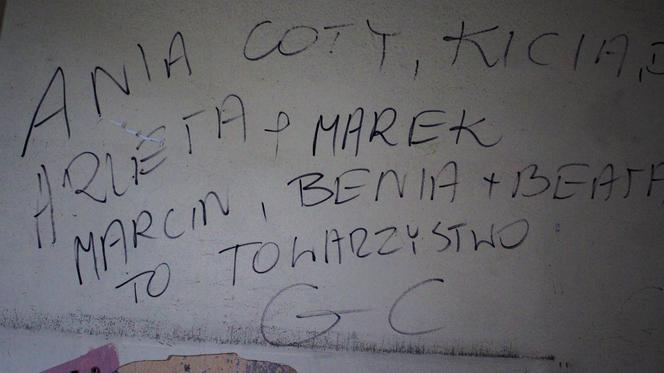 ANIA COTY, KICIA,
ARLETA + MAREK
MARCIN, BENIA + BEATA
TO TOWARZYSTWO
G-C